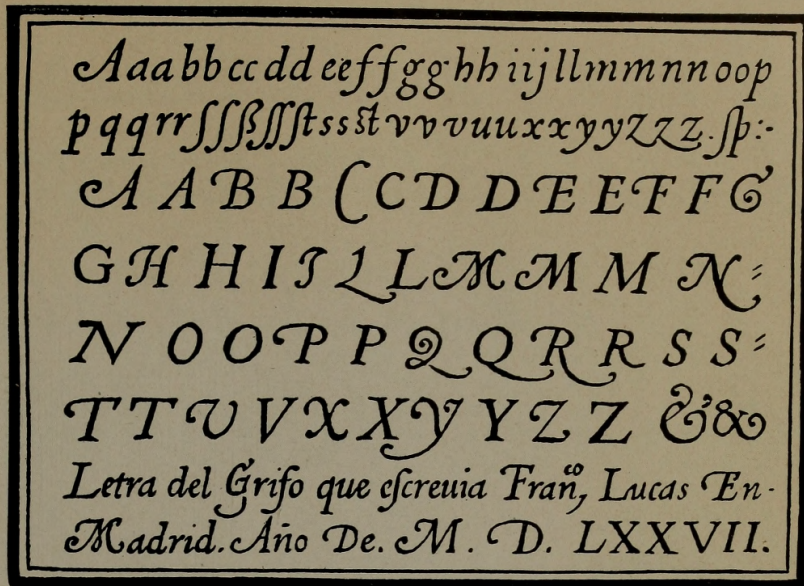 Aaabbccddeeffgghhiijllmmnnoop
pqqrrſſſßſſſtssstvvvuuxxyyzzz.ſp:-
A A B B C C D D E E F F G
G H H I J L L M M M N=
N O O P P Q Q R R S S=
T T V V X X Y Y Z Z & &
Letra del Grifo que eſcreuia Franᵒ, Lucas En-
Madrid. Año De. M. D. LXXVII.